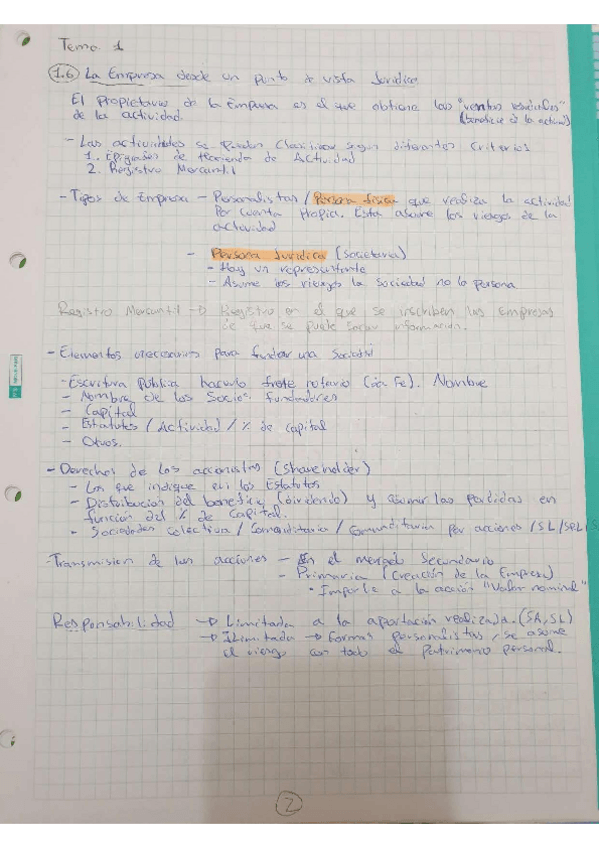 Tema 1
1.6 La Empresa desde un punto de vista Jurídico
El Propietarios de la Empresa es el que obtiene las "rentas residuales"
de la actividad. (beneficio de la activ)
- Las actividades se pueden Clasificar según diferentes Criterios
1. Epígrafes de Hacienda de Actividad
2. Registro Mercantil
- Tipos de Empresa - Personalistas / Persona física que realiza la actividad
Por cuenta Propia. Esta asume los riesgos de la
actividad
- Persona Jurídica (Societaria)
- Hay un representante
- Asume los riesgos la Sociedad no la Persona
Registro Mercantil -> Registro en el que se inscriben las Empresas
de que se puede Sacar información.
- Elementos necesarios para fundar una Sociedad
- Escritura Pública hacerlo frete notario (da Fe). Nombre
- Nombre de los Socios Fundadores
- Capital
- Estatutos / Actividad / % de Capital
- Otros.
- Derechos de los accionistas (Shareholder)
- Los que indique en los Estatutos
- Distribución del beneficio (dividendo) y asumir las perdidas en
función del % de Capital.
- Sociedades Colectiva / Comanditaria / Comanditaria por acciones / SL /
- Transmision de las acciones - En el mercado Secundario
- Primaria (Creación de la Empresa)
- Importe a la acción "Valor nominal"
Responsabilidad -> Limitada a la aportación realizada. (SA, SL)
-> Ilimitada -> Formas personalistas, se asume
el riesgo con todo el Patrimonio personal.
2